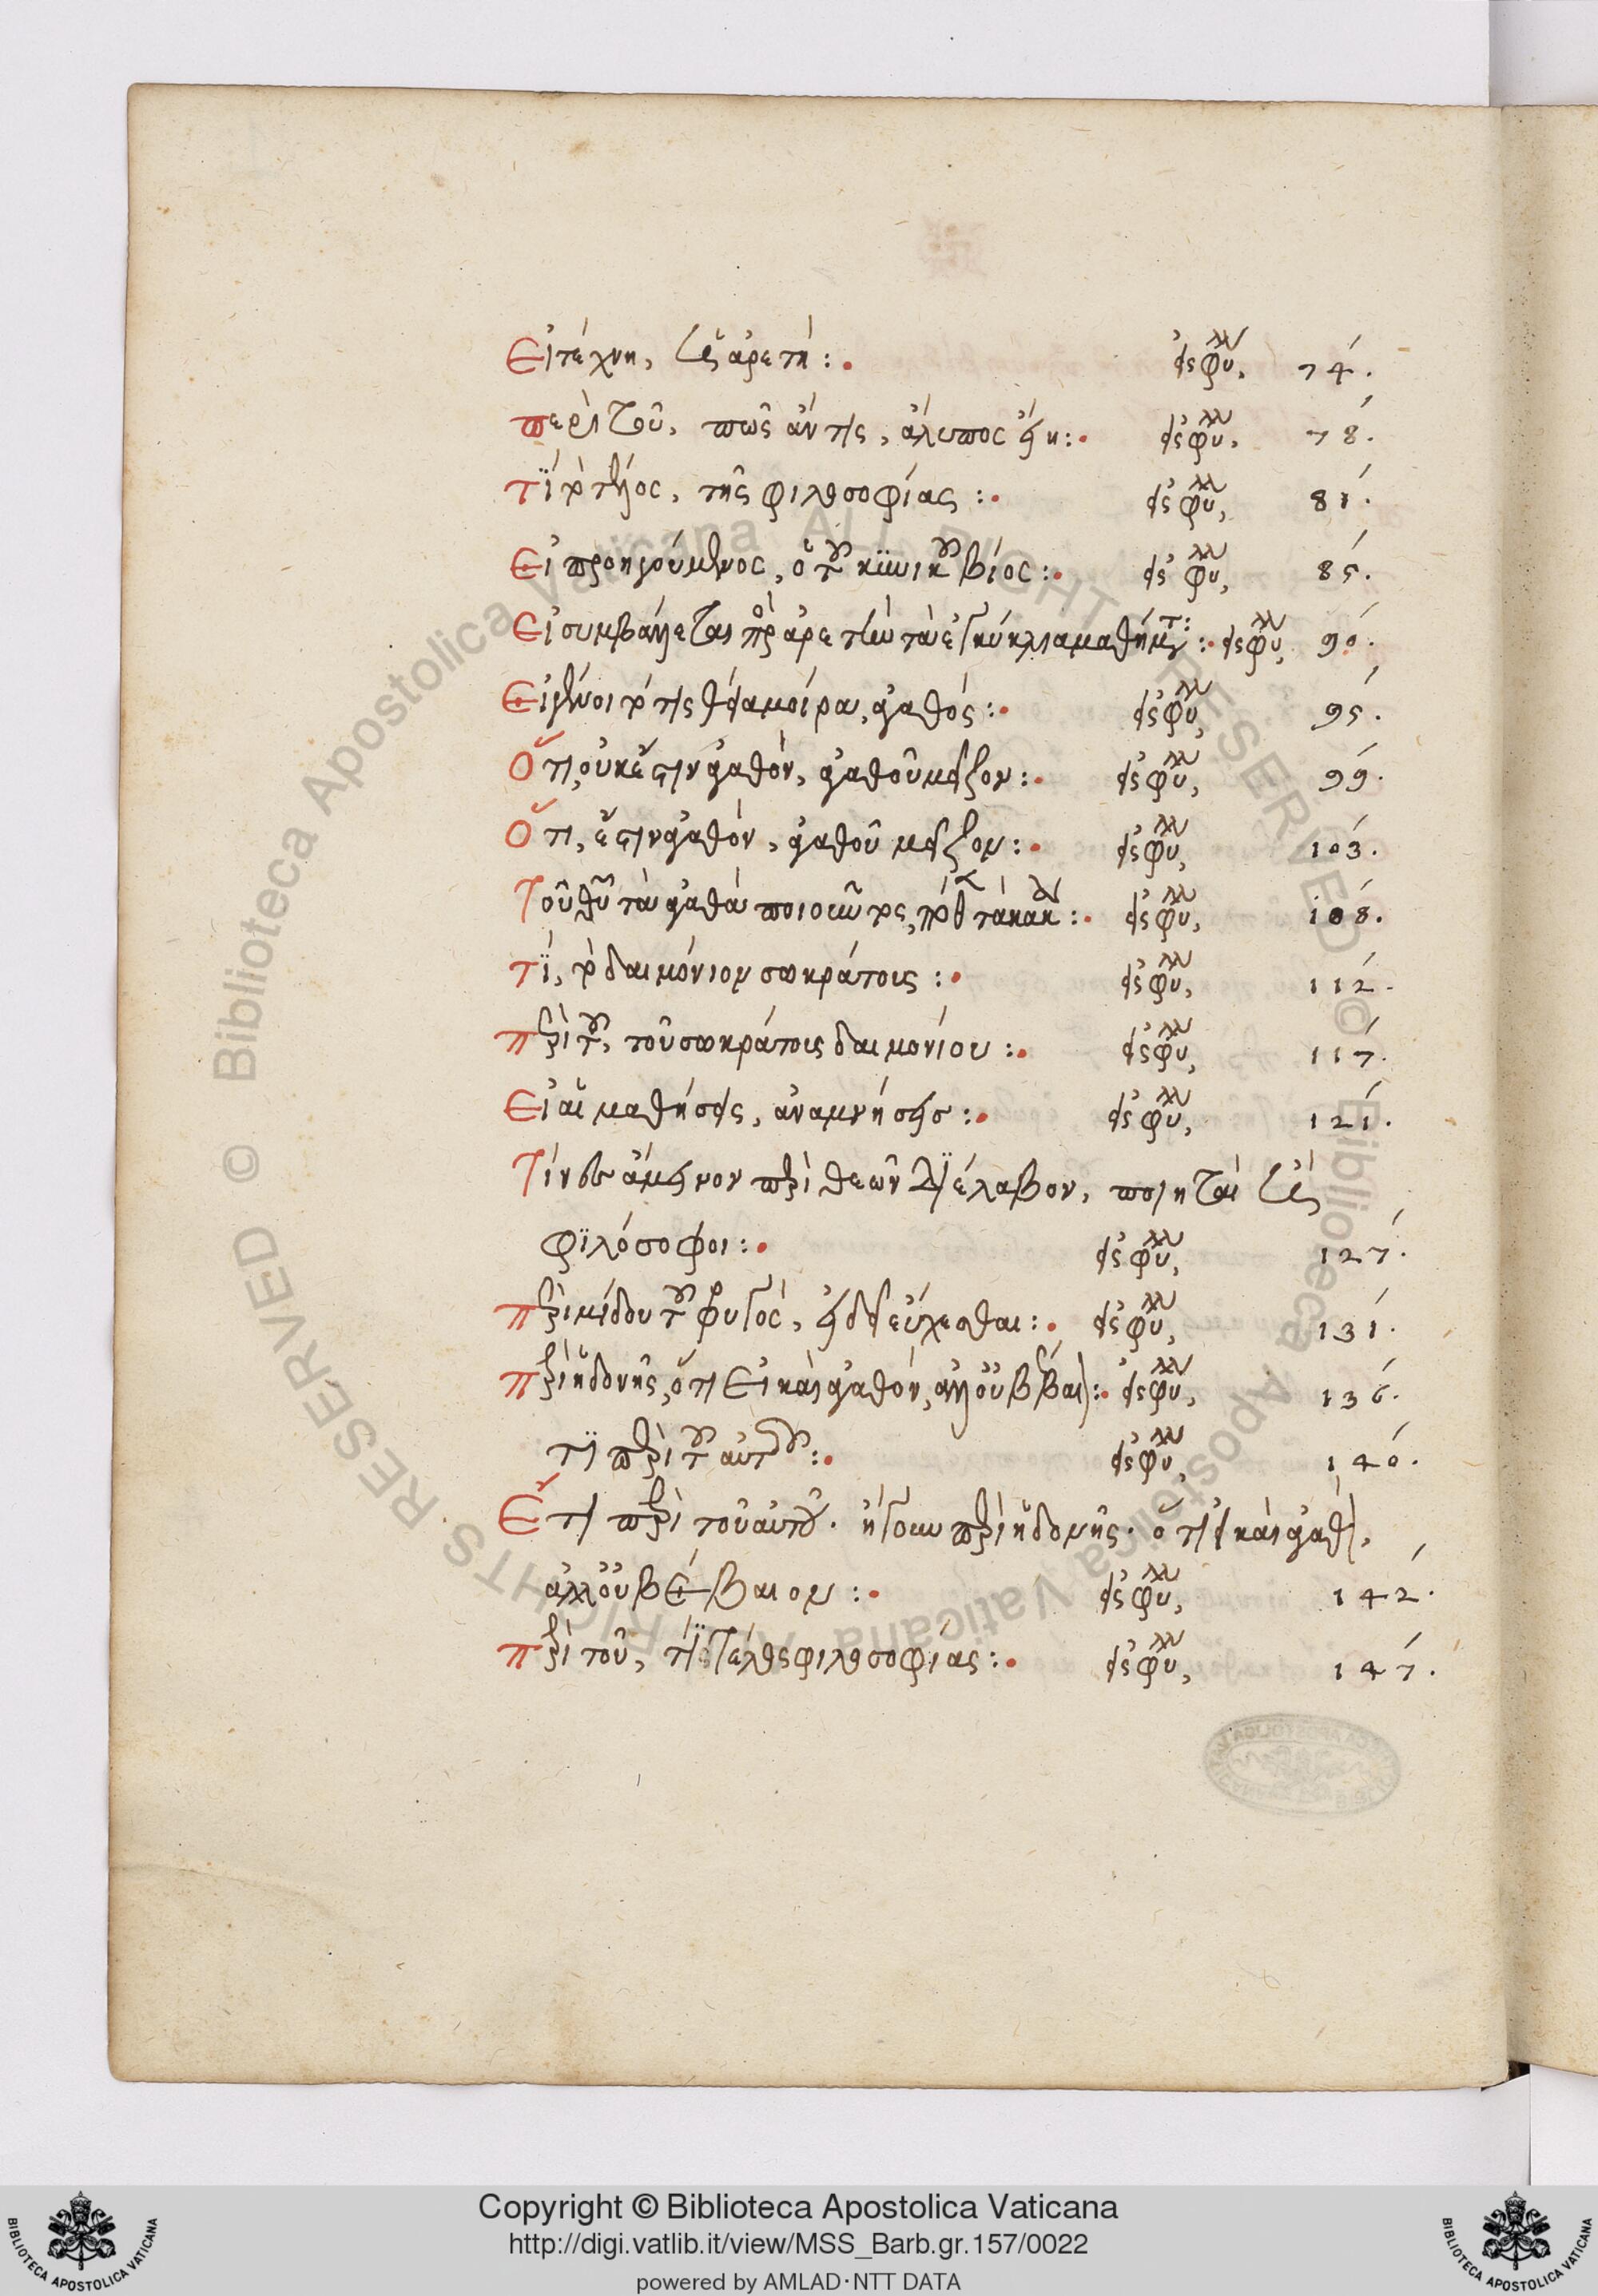 Εἰ τέχνη, καὶ ἡ ἀρετή :· εἰς φύλλ 74.
περὶ τοῦ, πῶς ἄν τις, ἄλυπος εἴη :· εἰς φύλλ 78.
τί τὸ τέλος, τῆς φιλοσοφίας :· εἰς φύλλ 81.
Εἰ προηγούμενος, ὁ τοῦ κυνικοῦ βίος :· εἰς φύλλ 85.
Εἰ συμβάλλεται πρὸς ἀρετὴν τὰ ἐγκύκλια μαθήματα :· εἰς φύλλ 90.
Εἰ γένοιτό τις θείᾳ μοίρᾳ, ἀγαθός :· εἰς φύλλ 95.
Ὅτι, οὐκ ἔστιν ἀγαθὸν, ἀγαθοῦ μεῖζον :· εἰς φύλλ 99.
Ὅτι, ἔστιν ἀγαθὸν, ἀγαθοῦ μεῖζον :· εἰς φύλλ 103.
Τοῦ θεοῦ τὰ ἀγαθὰ ποιοῦντος, πόθεν τὰ κακά :· εἰς φύλλ 108.
τί, τὸ δαιμόνιον σωκράτους :· εἰς φύλλ 112.
περὶ τοῦ, τοῦ σωκράτους δαιμονίου :· εἰς φύλλ 117.
Εἰ αἱ μαθήσεις, ἀναμνήσεις :· εἰς φύλλ 121.
Τίνες ἄμεινον περὶ θεῶν διέλαβον, ποιηταὶ καὶ
φιλόσοφοι :· εἰς φύλλ 127.
περὶ μίδου τοῦ φρυγὸς, εἰ δεῖ εὔχεσθαι :· εἰς φύλλ 131.
περὶ ἡδονῆς, ὅτι εἰ καὶ ἀγαθὸν, ἀλλ' οὐ βέβαιον :· εἰς φύλλ 136.
ἔτι περὶ τοῦ αὐτοῦ :· εἰς φύλλ 140.
Ἔτι περὶ τοῦ αὐτοῦ. ἤγουν περὶ ἡδονῆς. ὅτι εἰ καὶ ἀγαθὸν,
ἀλλ' οὐ βέβαιον :· εἰς φύλλ 142.
περὶ τοῦ, τί τέλος φιλοσοφίας :· εἰς φύλλ 147.
Copyright © Biblioteca Apostolica Vaticana
http://digi.vatlib.it/view/MSS_Barb.gr.157/0022
powered by AMLAD·NTT DATA